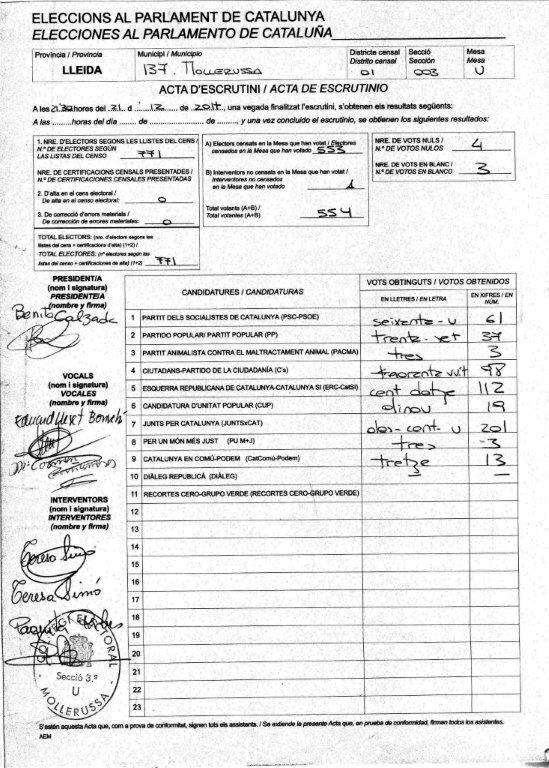 ELECCIONS AL PARLAMENT DE CATALUNYA
ELECCIONES AL PARLAMENTO DE CATALUÑA
Província / Provincia
LLEIDA
Municipi / Municipio
137. MOLLERUSSA
Districte censal
Distrito censal
01
Secció
Sección
003
Mesa
Mesa
U
ACTA D'ESCRUTINI / ACTA DE ESCRUTINIO
A les 21:30 hores del 21 d 12 de 2017, una vegada finalitzat l'escrutini, s'obtenen els resultats següents:
A las ........ horas del día ........ de ........ de ........, y una vez concluido el escrutinio, se obtienen los siguientes resultados:
1. NRE. D'ELECTORS SEGONS LES LLISTES DEL CENS /
N.º DE ELECTORES SEGÚN
LAS LISTAS DEL CENSO 771
NRE. DE CERTIFICACIONS CENSALS PRESENTADES /
N.º DE CERTIFICACIONES CENSALES PRESENTADAS
2. D'alta en el cens electoral /
De alta en el censo electoral: 0
3. De correcció d'errors materials /
De corrección de errores materiales: 0
TOTAL ELECTORS: (nre. d'electors segons les
llistes del cens + certificacions d'alta) (1+2) /
TOTAL ELECTORES: (nº electores según las
listas del censo + certificaciones de alta) (1+2) 771
A) Electors censats en la Mesa que han votat / Electores
censados en la Mesa que han votado 553
B) Interventors no censats en la Mesa que han votat /
Interventores no censados
en la Mesa que han votado 1
Total votants (A+B) /
Total votantes (A+B) 554
NRE. DE VOTS NULS /
N.º DE VOTOS NULOS 4
NRE. DE VOTS EN BLANC /
N.º DE VOTOS EN BLANCO 3
PRESIDENT/A
(nom i signatura)
PRESIDENTE/A
(nombre y firma)
Benito Calzada
VOCALS
(nom i signatura)
VOCALES
(nombre y firma)
INTERVENTORS
(nom i signatura)
INTERVENTORES
(nombre y firma)
Teresa Simó
Teresa Simó
Paquita
CANDIDATURES / CANDIDATURAS
VOTS OBTINGUTS / VOTOS OBTENIDOS
EN LLETRES / EN LETRA
EN XIFRES / EN NÚM.
1 PARTIT DELS SOCIALISTES DE CATALUNYA (PSC-PSOE) seixanta-u 61
2 PARTIDO POPULAR/ PARTIT POPULAR (PP) trenta-set 37
3 PARTIT ANIMALISTA CONTRA EL MALTRACTAMENT ANIMAL (PACMA) tres 3
4 CIUTADANS-PARTIDO DE LA CIUDADANÍA (C's) 98
5 ESQUERRA REPUBLICANA DE CATALUNYA-CATALUNYA SI (ERC-CatSí) cent dotze 112
6 CANDIDATURA D'UNITAT POPULAR (CUP) dinou 19
7 JUNTS PER CATALUNYA (JUNTSxCAT) dos-cent-u 201
8 PER UN MÓN MÉS JUST (PU M+J) tres 3
9 CATALUNYA EN COMÚ-PODEM (CatComú-Podem) tretze 13
10 DIÀLEG REPUBLICÀ (DIÀLEG) — —
11 RECORTES CERO-GRUPO VERDE (RECORTES CERO-GRUPO VERDE)
12
13
14
15
16
17
18
19
20
21
22
23
Secció 3.ª
U
MOLLERUSSA
S'estén aquesta Acta que, com a prova de conformitat, signen tots els assistents. / Se extiende la presente Acta que, en prueba de conformidad, firman todos los asistentes.
AEM